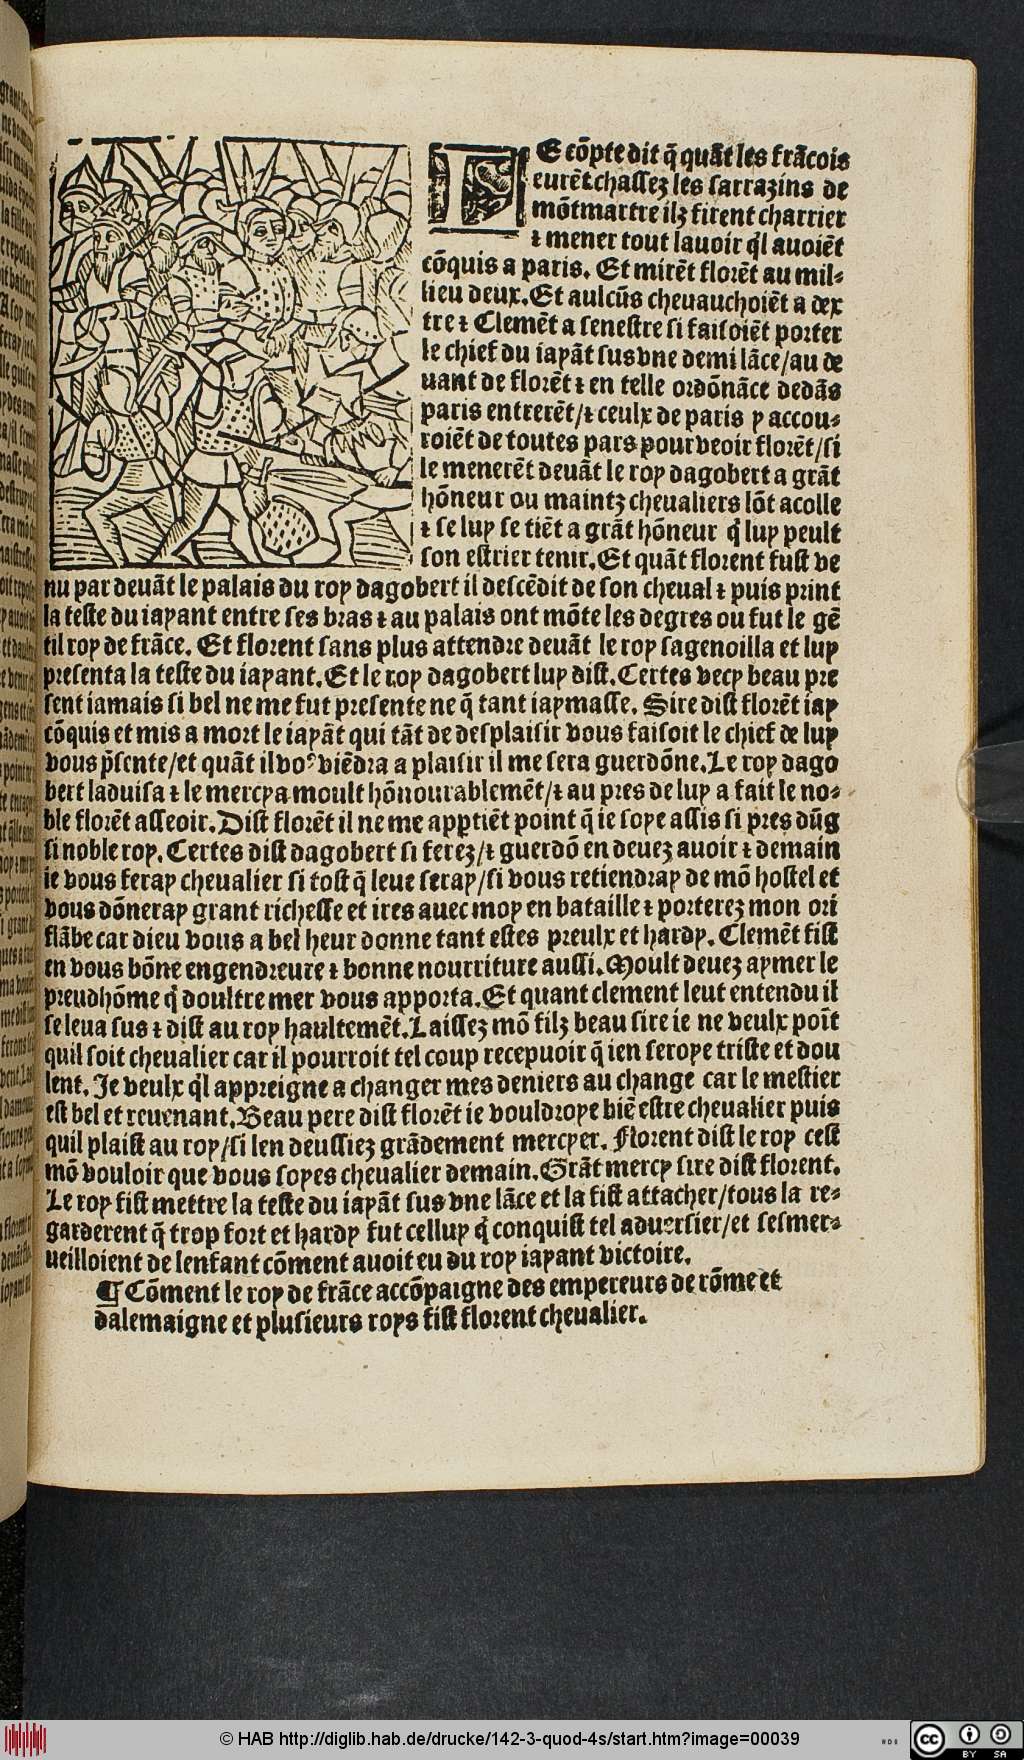 LE cõpte dit q̃ quãt les frãcois
eurẽt chassez les sarrazins de
mõtmartre ilz firent charrier
⁊ mener tout lauoir q̃l auoiẽt
cõquis a paris. Et mirẽt florẽt au mil-
lieu deux. Et aulcũs cheuauchoiẽt a dex
tre ⁊ Clemẽt a senestre si faisoiẽt porter
le chief du iayãt sus vne demi lãce/au de
uant de florẽt ⁊ en telle ordõnãce dedãs
paris entrerẽt/⁊ ceulx de paris y accou-
roiẽt de toutes pars pour veoir florẽt/si
le menerẽt deuãt le roy dagobert a grãt
hõneur ou maintz cheualiers lõt acolle
⁊ se luy se tiẽt a grãt hõneur q̃ luy peult
son estrier tenir. Et quãt florent fust ve
nu par deuãt le palais du roy dagobert il descẽdit de son cheual ⁊ puis print
la teste du iayant entre ses bras ⁊ au palais ont mõte les degres ou fut le gẽ
til roy de frãce. Et florent sans plus attendre deuãt le roy sagenoilla et luy
presenta la teste du iayant. Et le roy dagobert luy dist. Certes vecy beau pre
sent iamais si bel ne me fut presente ne q̃ tant iaymasse. Sire dist florẽt iay
cõquis et mis a mort le iayãt qui tãt de desplaisir vous faisoit le chief de luy
vous p̃sente/et quãt il voꝰ viẽdra a plaisir il me sera guerdõne. Le roy dago
bert laduisa ⁊ le mercya moult hõnourablemẽt/⁊ au pres de luy a fait le no-
ble florẽt asseoir. Dist florẽt il ne me appartiẽt point q̃ ie soye assis si pres dũg
si noble roy. Certes dist dagobert si ferez/⁊ guerdõ en deuez auoir ⁊ demain
ie vous feray cheualier si tost q̃ leue seray/si vous retiendray de mõ hostel et
vous dõneray grant richesse et ires auec moy en bataille ⁊ porterez mon ori
flãbe car dieu vous a bel heur donne tant estes preulx et hardy. Clemẽt fist
en vous bõne engendreure ⁊ bonne nourriture aussi. Moult deuez aymer le
preudhõme q̃ doultre mer vous apporta. Et quant clement leut entendu il
se leua sus ⁊ dist au roy haultemẽt. Laissez mõ filz beau sire ie ne veulx poĩt
quil soit cheualier car il pourroit tel coup recepuoir q̃ ien seroye triste et dou
lent. Je veulx q̃l appreigne a changer mes deniers au change car le mestier
est bel et reuenant. Beau pere dist florẽt ie vouldroye biẽ estre cheualier puis
quil plaist au roy/si len deussiez grãdement mercyer. Florent dist le roy cest
mõ vouloir que vous soyes cheualier demain. Grãt mercy sire dist florent.
Le roy fist mettre la teste du iayãt sus vne lãce et la fist attacher/tous la re-
garderent q̃ trop fort et hardy fut celluy q̃ conquist tel aduersier/et sesmer-
ueilloient de lenfant cõment auoit eu du roy iayant victoire.
¶ Cõment le roy de frãce accõpaigne des empereurs de rõme et
dalemaigne et plusieurs roys fist florent cheualier.
© HAB http://diglib.hab.de/drucke/142-3-quod-4s/start.htm?image=00039
cc BY SA